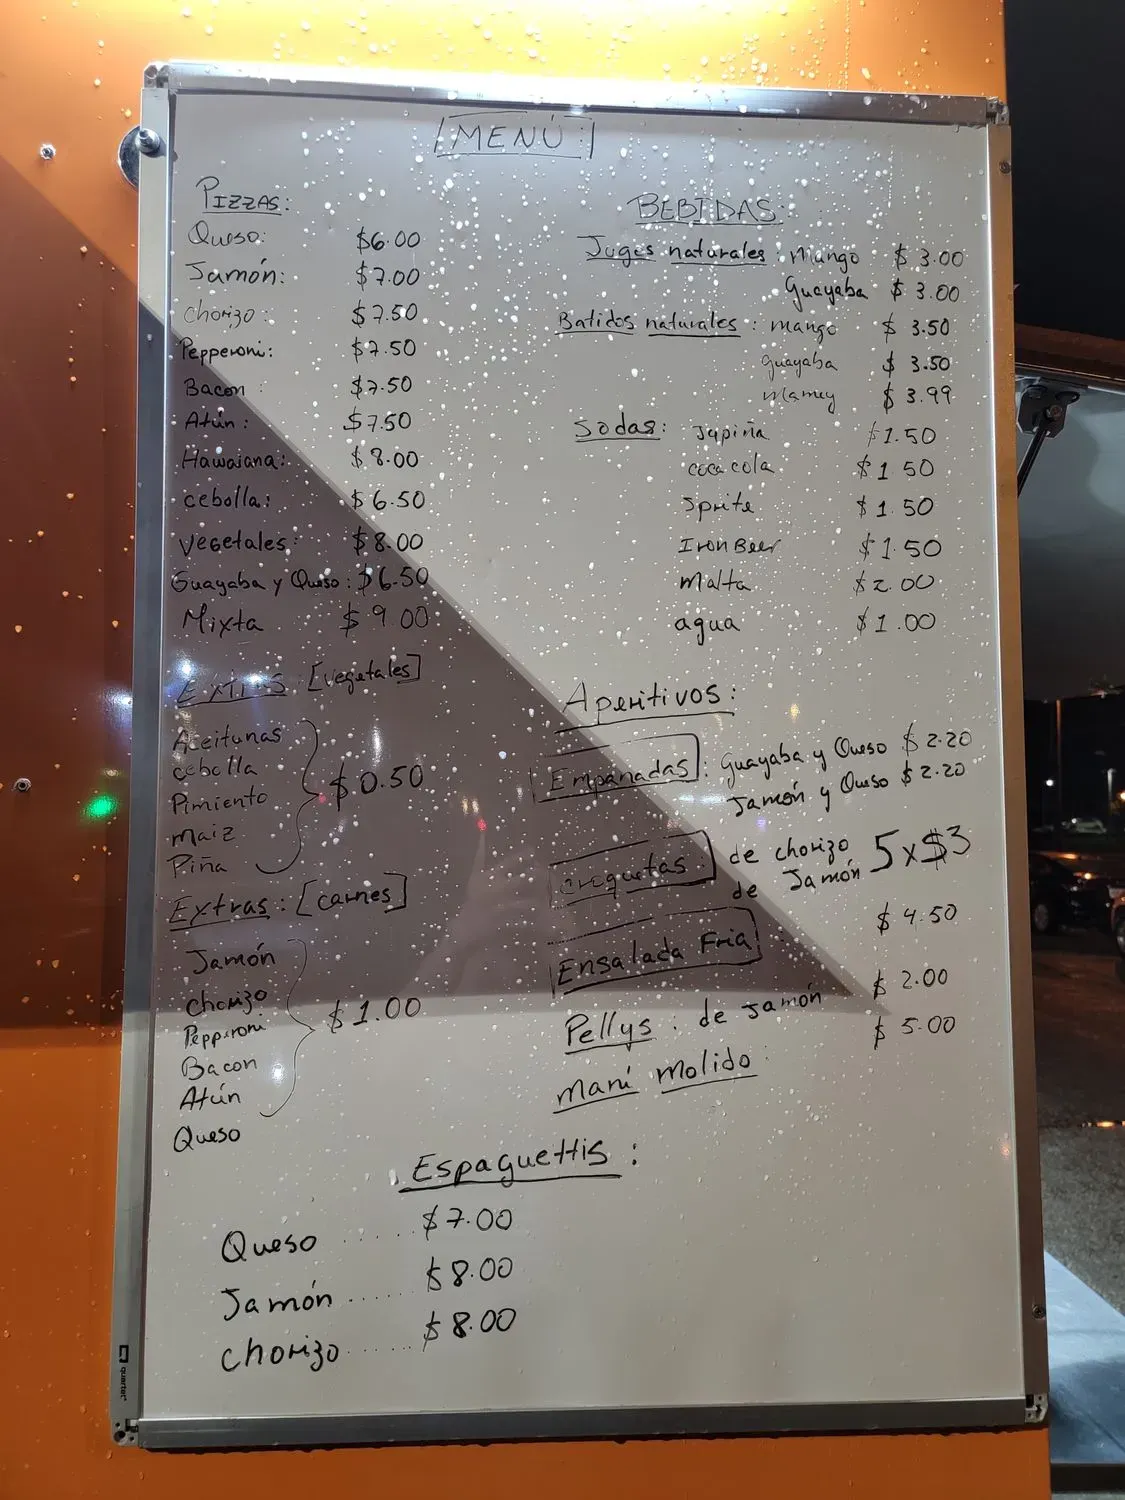 MENÚ:
PIZZAS:
Queso: $6.00
Jamón: $7.00
chorizo: $7.50
Pepperoni: $7.50
Bacon: $7.50
Atún: $7.50
Hawaiana: $8.00
cebolla: $6.50
vegetales: $8.00
Guayaba y Queso: $6.50
Mixta $9.00
Extras [vegetales]
Aceitunas
cebolla
Pimiento
maiz
Piña
$0.50
Extras: [carnes]
Jamón
chorizo
Pepperoni
Bacon
Atún
Queso
$1.00
BEBIDAS:
Jugos naturales: mango $3.00
Guayaba $3.00
Batidos naturales: mango $3.50
guayaba $3.50
mamey $3.99
Sodas: Jupiña $1.50
coca cola $1.50
Sprite $1.50
Iron Beer $1.50
malta $2.00
agua $1.00
Aperitivos:
Empanadas: Guayaba y Queso $2.20
Jamón y Queso $2.20
croquetas: de chorizo
de Jamón
5x$3
Ensalada Fria: $4.50
Pellys: de Jamón $2.00
maní molido: $5.00
Espaguettis:
Queso ..... $7.00
Jamón ..... $8.00
chorizo ..... $8.00
quartet